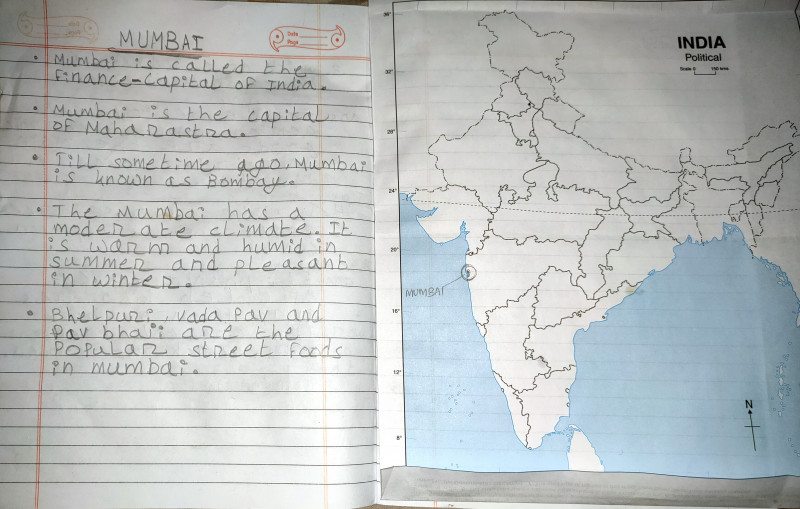 MUMBAI
Date
Page
• Mumbai is called the
finance-capital of India.
• Mumbai is the capital
of Maharastra.
• Till sometime ago, Mumbai
is known as Bombay.
• The Mumbai has a
moderate climate. It
is warm and humid in
summer and pleasant
in winter.
• Bhelpuri, vada pav and
pav bhaji are the
popular street foods
in mumbai.
INDIA
Political
36°
32°
28°
24°
20°
16°
12°
8°
MUMBAI
N